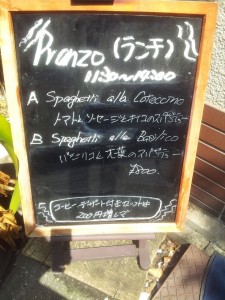 Pranzo (ランチ)
11:30~14:00
A Spaghetti alla Cotecchino
トマトとソーセージとチーズのスパゲティー
B Spaghetti alla Basilico
バジリコと大葉のスパゲティー
¥800.
コーヒー デザート付きセットは
200円増しで